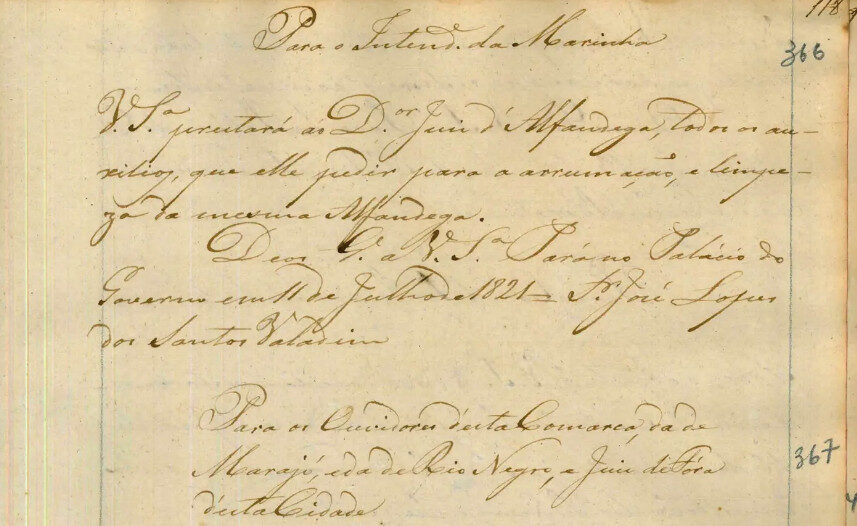 118
Para o Intend.e da Marinha
366
V. S.a prestará ao D.or Juiz d'Alfandega, todos os au-
xilios, que elle pedir para a arrumação, e limpe-
za da mesma Alfandega.
Deos G.e a V. S.a Pará no Palácio do
Governo em 11 de Julho de 1821 = S.r José Lopes
dos Santos Valadim
Para os Ouvidores desta Comarca, da de
Marajó, e da de Rio Negro, e Juiz de Fóra
desta Cidade
367
4